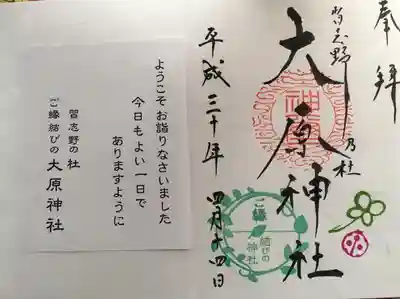 奉拝
習志野乃杜
大原神社
平成三十年 四月十四日
ご縁結びの神社
ようこそお詣りなさいました
今日もよい一日で
ありますように
習志野の杜
ご縁結びの 大原神社